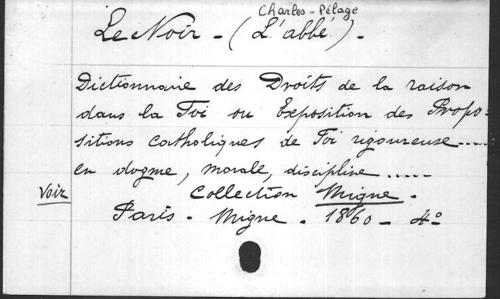 Charles-Pélage
Le Noir - (L'abbé) -
Dictionnaire des Droits de la raison
dans la Foi ou Exposition des Propo-
sitions catholiques de Foi rigoureuse.....
en dogme, morale, discipline.....
Voir Collection Migne.
Paris - Migne - 1860 - 4º